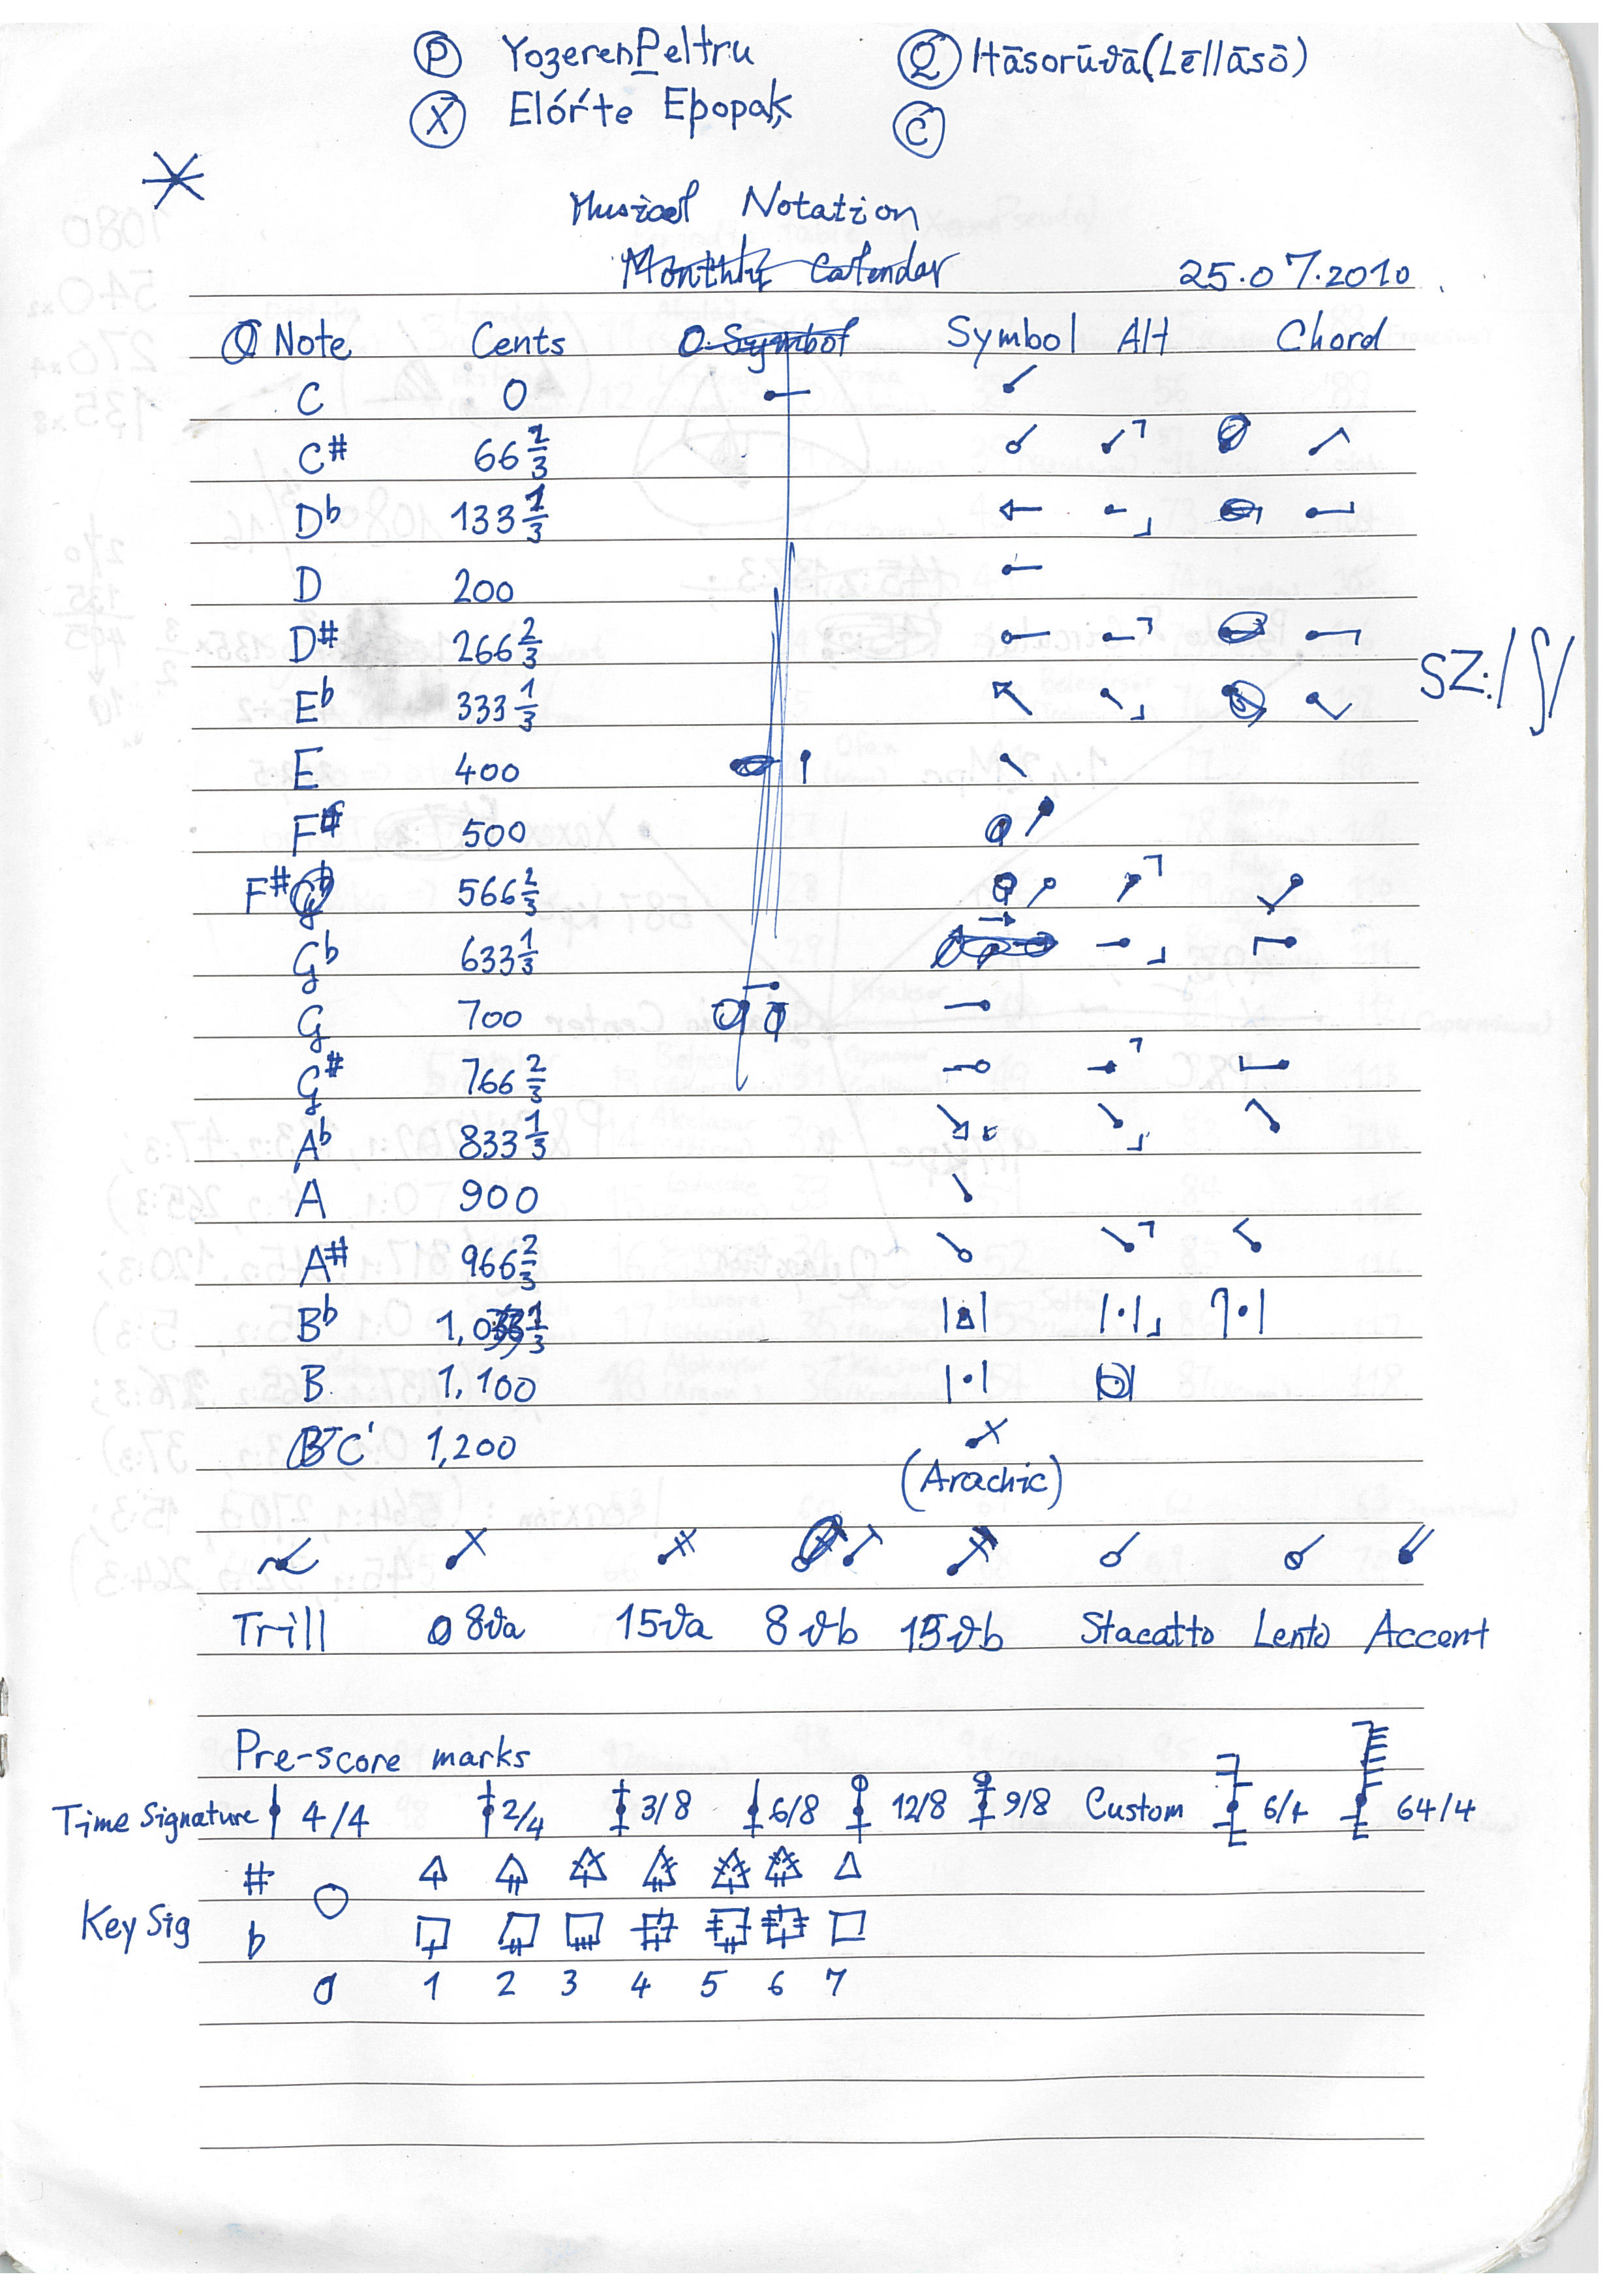 Ⓟ YozerenPeltru Ⓠ Itāsorūϑā(Lēllāsō)
Ⓧ Elórte Eþopak Ⓒ
Musical Notation
Monthly Calendar 25.07.2010
Note Cents Symbol Symbol Alt Chord
C 0
C# 66 2/3
Db 133 1/3
D 200
D# 266 2/3
SZ:/∫/
Eb 333 1/3
E 400
F 500
F# 566 2/3
Gb 633 1/3
G 700
G# 766 2/3
Ab 833 1/3
A 900
A# 966 2/3
Bb 1,033 1/3
B 1,100
C' 1,200
(Arachic)
Trill 8va 15va 8vb 15vb Stacatto Lento Accent
Pre-score marks
Time Signature 4/4 2/4 3/8 6/8 12/8 9/8 Custom 6/4 64/4
#
Key Sig
b
0 1 2 3 4 5 6 7